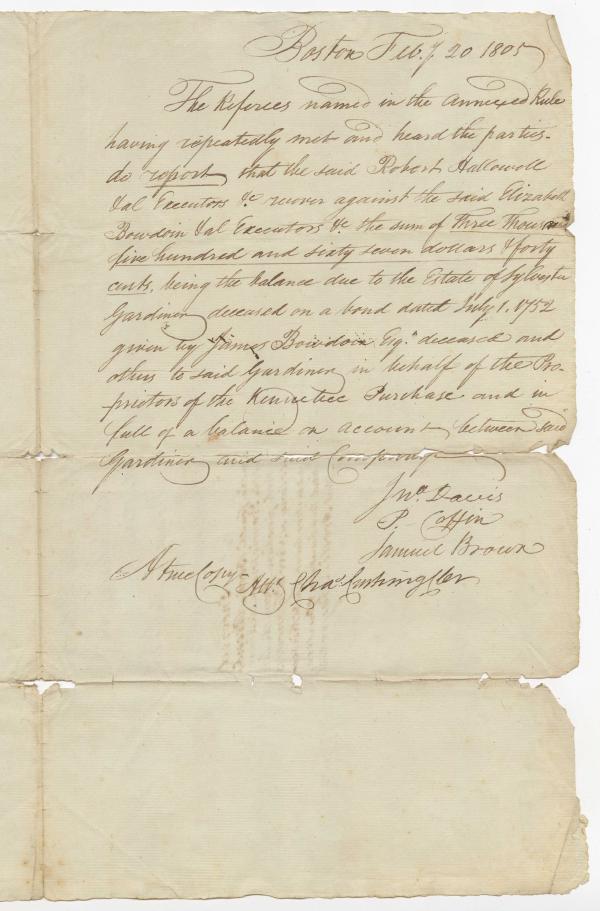 Boston Feb.y 20 1805
The Referees named in the annexed Rule
having repeatedly met and heard the parties
do report that the said Robert Hallowell
& al Executors &c recover against the said Elizabeth
Bowdoin & al Executors &c the sum of three thousand
five hundred and sixty seven dollars & forty
cents, being the balance due to the Estate of Sylvester
Gardiner deceased on a bond dated July 1. 1752
given by James Bowdoin Esqr deceased and
others to said Gardiner in behalf of the Pro-
prietors of the Kennebec Purchase and in
full of a balance on account between said
Gardiner and said Company
Jno. Davis
P. Coffin
Samuel Brown
A true Copy Att. Chas Cushing Cler